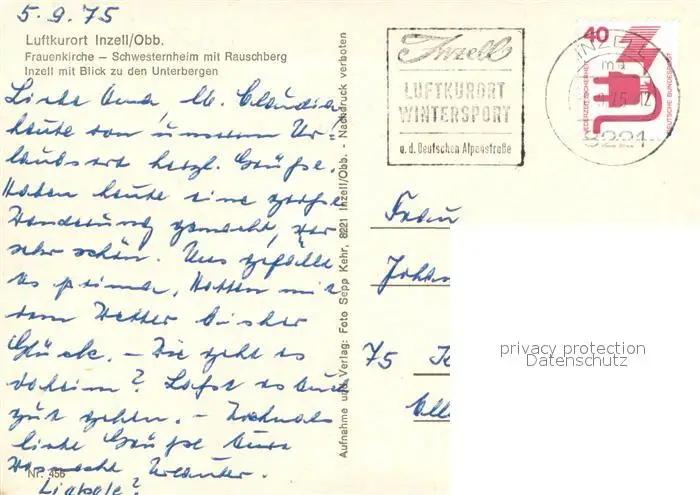 5.9.75
Luftkurort Inzell/Obb.
Frauenkirche — Schwesternheim mit Rauschberg
Inzell mit Blick zu den Unterbergen
Liebe Oma, U. Claudia,
heute von unserem Ur-
laubsort herzl. Grüße.
Haben heute eine große
Wanderung gemacht, war
sehr schön. Uns gefällt
es prima, hatten mit
dem Wetter bisher
Glück. – Wie geht es
daheim? Laßt es Euch
gut gehen. – Nochmals
liebe Grüße Eure
Urlauber.
Nr. 456
Aufnahme und Verlag: Foto Sepp Kehr, 8221 Inzell/Obb. - Nachdruck verboten
Inzell
LUFTKURORT
WINTERSPORT
a.d. Deutschen Alpenstraße
40
JEDERZEIT SICHERHEIT
DEUTSCHE BUNDESPOST
INZELL
ma
8221
Frau
75
privacy protection
Datenschutz